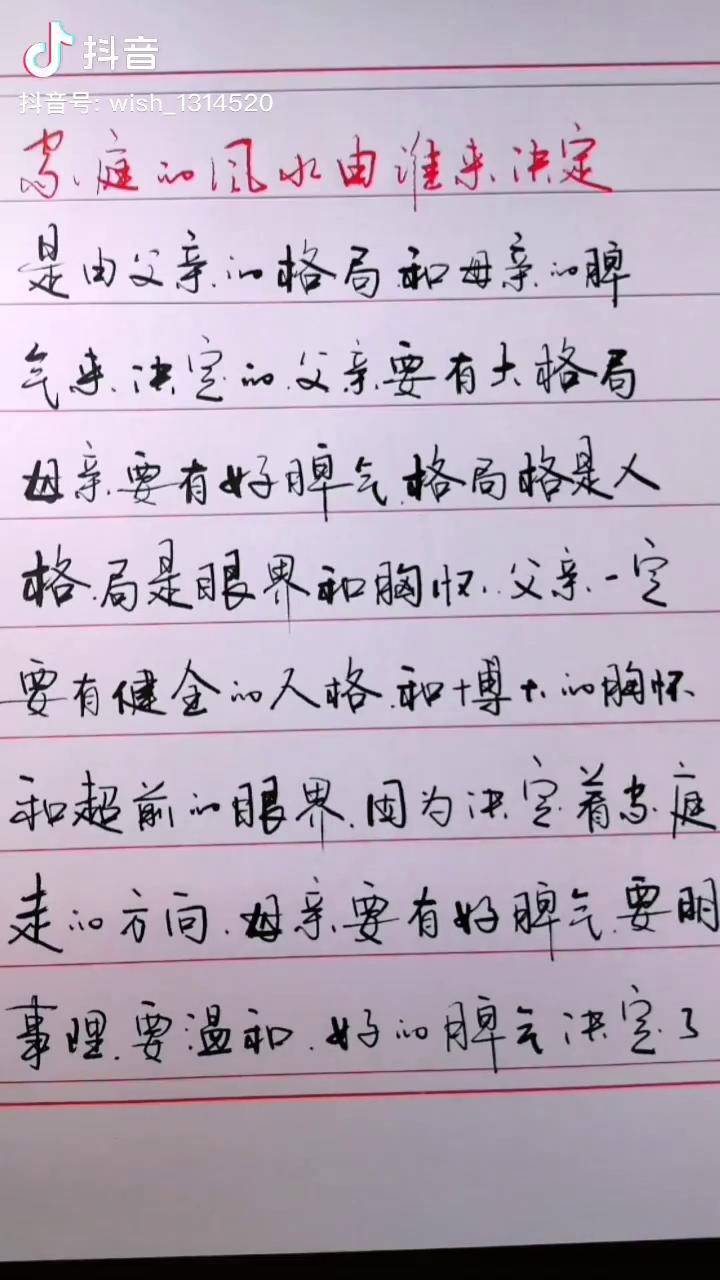 抖音
抖音号: wish_1314520
家庭的风水由谁来决定
是由父亲的格局和母亲的脾
气来决定的父亲要有大格局
母亲要有好脾气格局格是人
格局是眼界和胸怀父亲一定
要有健全的人格和博大的胸怀
和超前的眼界因为决定着家庭
走的方向母亲要有好脾气要明
事理要温和好的脾气决定了